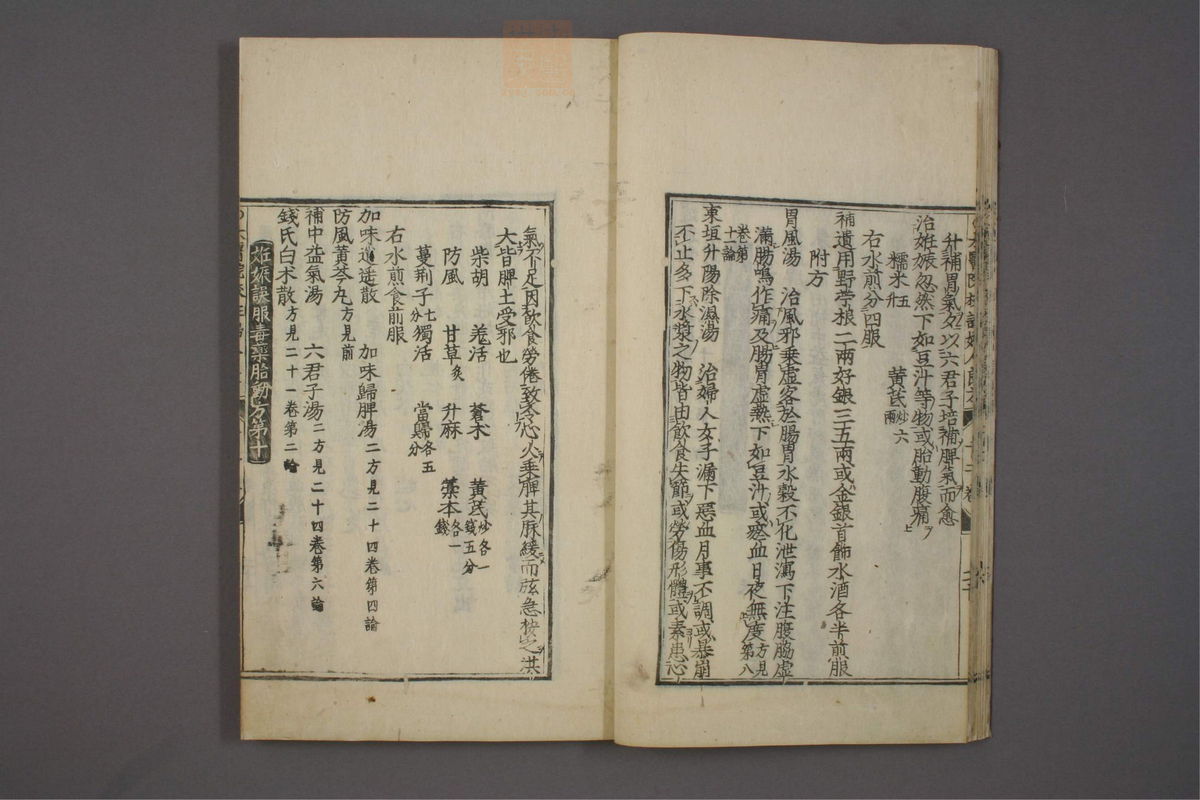 升補胃氣久以六君子培補脾氣而愈
治姙娠忽然下如豆汁等物或胎動腹痛
糯米五升 黄芪炒六兩
右水煎分四服
補遺用野苧根二兩好銀三五兩或金銀首飾水酒各半煎服
附方
胃風湯 治風邪乗虚客於腸胃水穀不化泄瀉下注腹脇虚
滿腸鳴作痛及腸胃虚熱下如豆汁或瘀血日夜無度方見第八
卷第十一論
東垣升陽除濕湯 治婦人女子漏下惡血月事不調或暴崩
不止多下水漿之物皆由飲食失節或勞傷形體或素患心
氣不足因飲食勞倦致令心火乗脾其脉緩而弦急按之洪
大皆脾土受邪也
柴胡 羗活 蒼术 黄芪炒各一錢五分
防風 甘草炙 升麻 藁本各一錢
蔓荆子七分 獨活 當歸各五分
右水煎食前服
加味逍遥散 加味歸脾湯二方見二十四卷第四論
防風黄芩丸方見前
補中益氣湯 六君子湯二方見二十四卷第六論
錢氏白术散方見二十一卷第二論
姙娠誤服毒藥胎動方第十